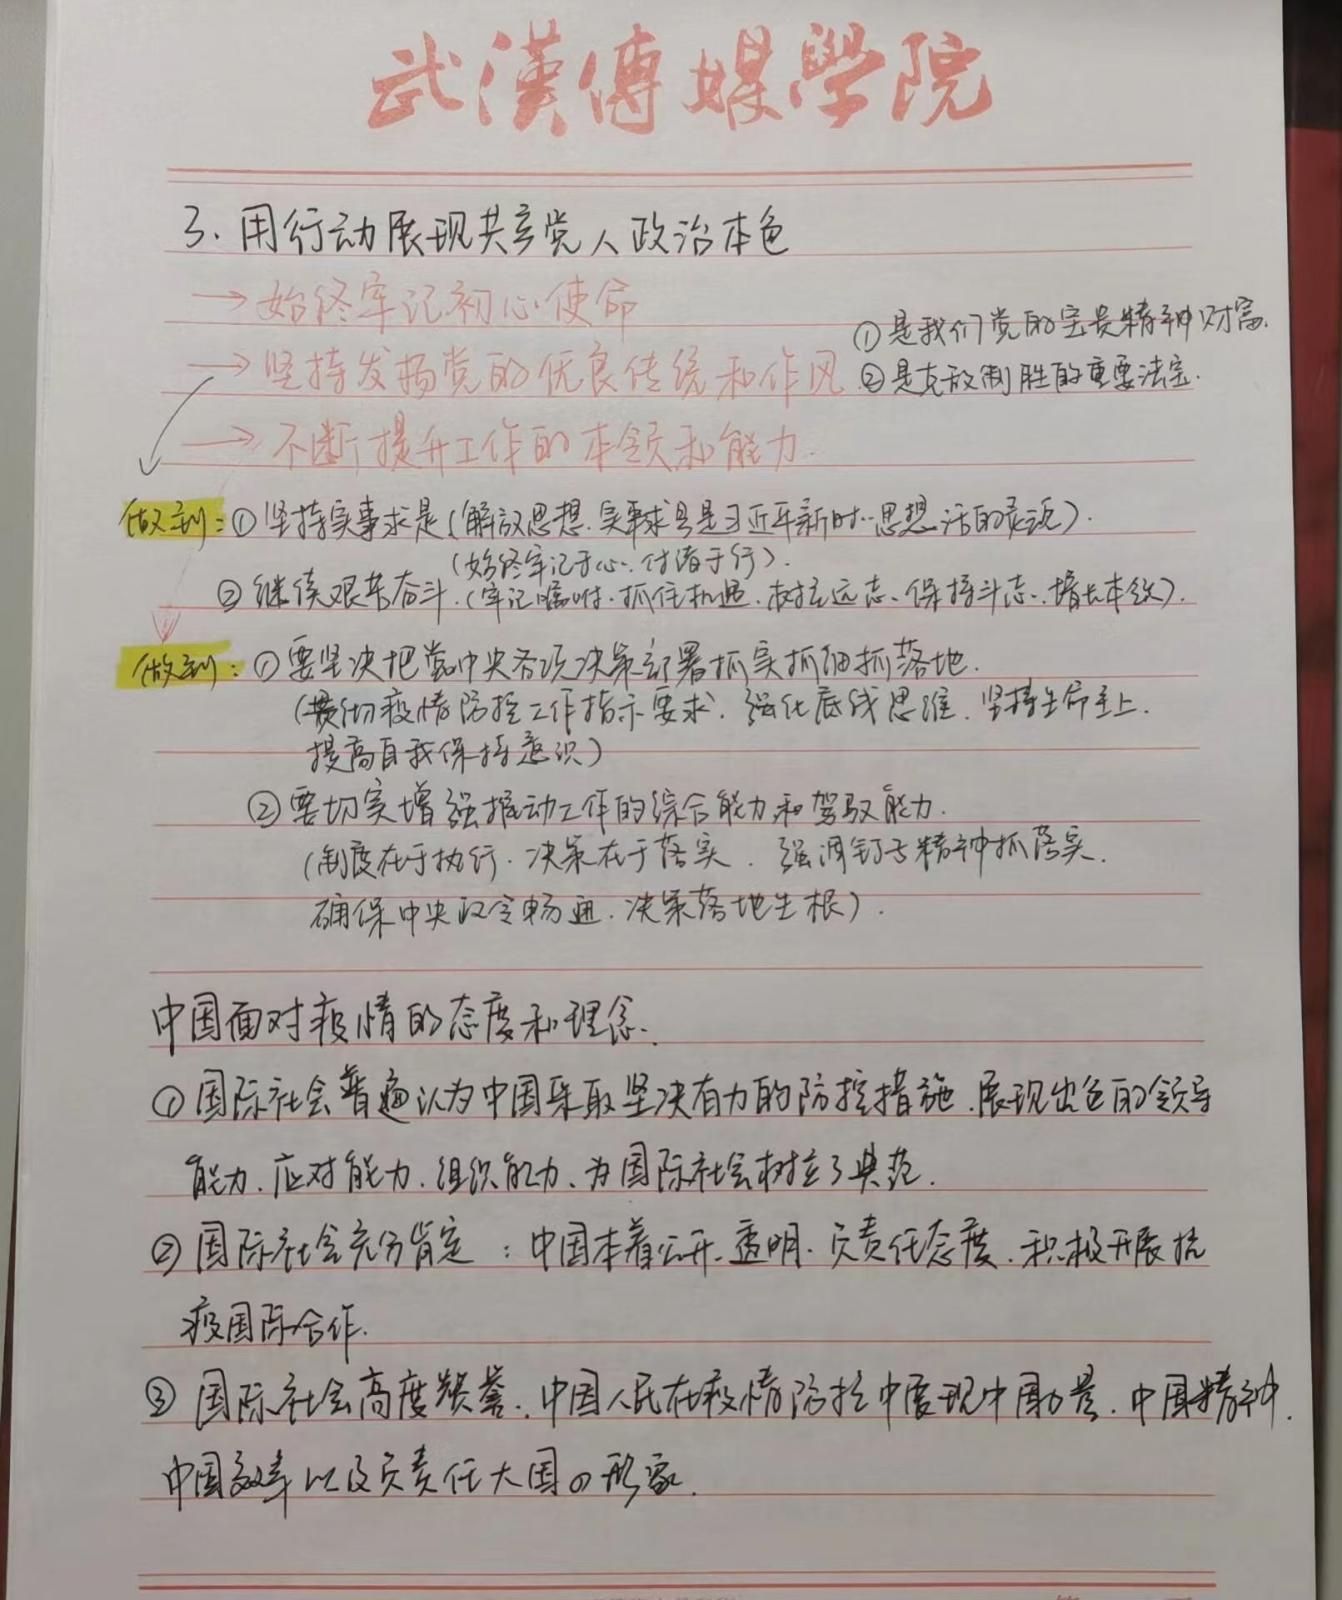 武漢傳媒學院
3、用行动展现共产党人政治本色
→始终牢记初心使命
①是我们党的宝贵精神财富.
→坚持发扬党的优良传统和作风
②是克敌制胜的重要法宝.
→不断提升工作的本领和能力.
做到:①坚持实事求是(解放思想.实事求是是习近平新时..思想活的灵魂).
(始终牢记于心.付诸于行).
②继续艰苦奋斗.(牢记嘱咐.抓住机遇.树立远志、保持斗志.增长本领).
做到:①要坚决把党中央各项决策部署抓实抓细抓落地.
(贯彻疫情防控工作指示要求.强化底线思维.坚持生命至上.
提高自我保持意识)
②要切实增强推动工作的综合能力和驾驭能力.
(制度在于执行.决策在于落实.强调钉子精神抓落实.
确保中央政令畅通.决策落地生根).
中国面对疫情的态度和理念.
①国际社会普遍认为中国采取坚决有力的防控措施.展现出色的领导
能力.应对能力.组织能力、为国际社会树立了典范.
②国际社会充分肯定:中国本着公开.透明.负责任态度.积极开展抗
疫国际合作.
③国际社会高度赞誉.中国人民在疫情防控中展现中国力量.中国精神.
中国效率以及负责任大国の形象.